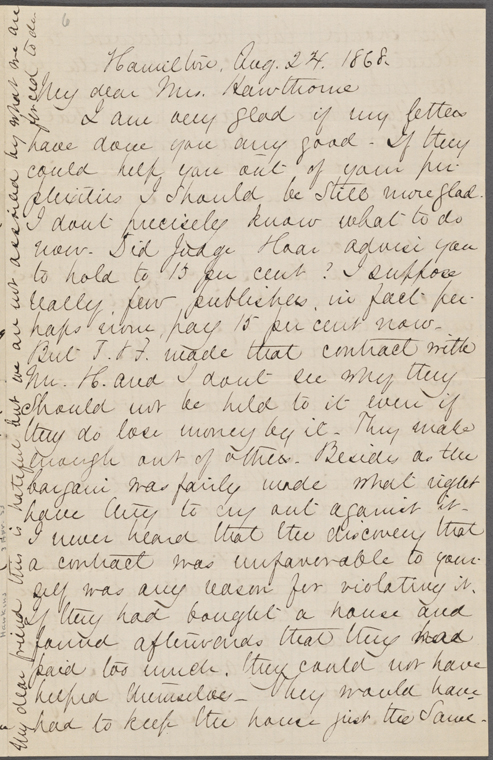 6
Hamilton, Aug. 24. 1868.
My dear Mrs. Hawthorne
I am very glad if my letters
have done you any good - If they
could help you out of your per
plexities I should be still more glad.
I dont precisely know what to do
now. Did Judge Hoar advise you
to hold to 15 per cent? I suppose
really few publishers, in fact per-
haps none pay 15 per cent now.
But T. & F. made that contract with
Mr. H. and I dont see why they
should not be held to it even if
they do lose money by it - They make
enough out of others. Besides as the
bargain was fairly made what right
have they to cry out against it -
I never heard that the discovery that
a contract was unfavorable to your-
self was any reason for violating it.
If they had bought a house and
found afterwards that they had
paid too much, they could not have
helped themselves - They would have
had to keep the house just the same -
My dear friend this is hateful but we are not assoiled by what we are
forced to do